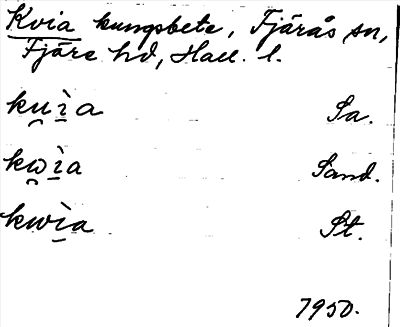 Kvia kungsbete, Fjärås sn,
Fjäre hd, Hall. l.
ku̯ì̱a Sa.
kω̯ì̱a Sand.
kwì̱a St.
1950.